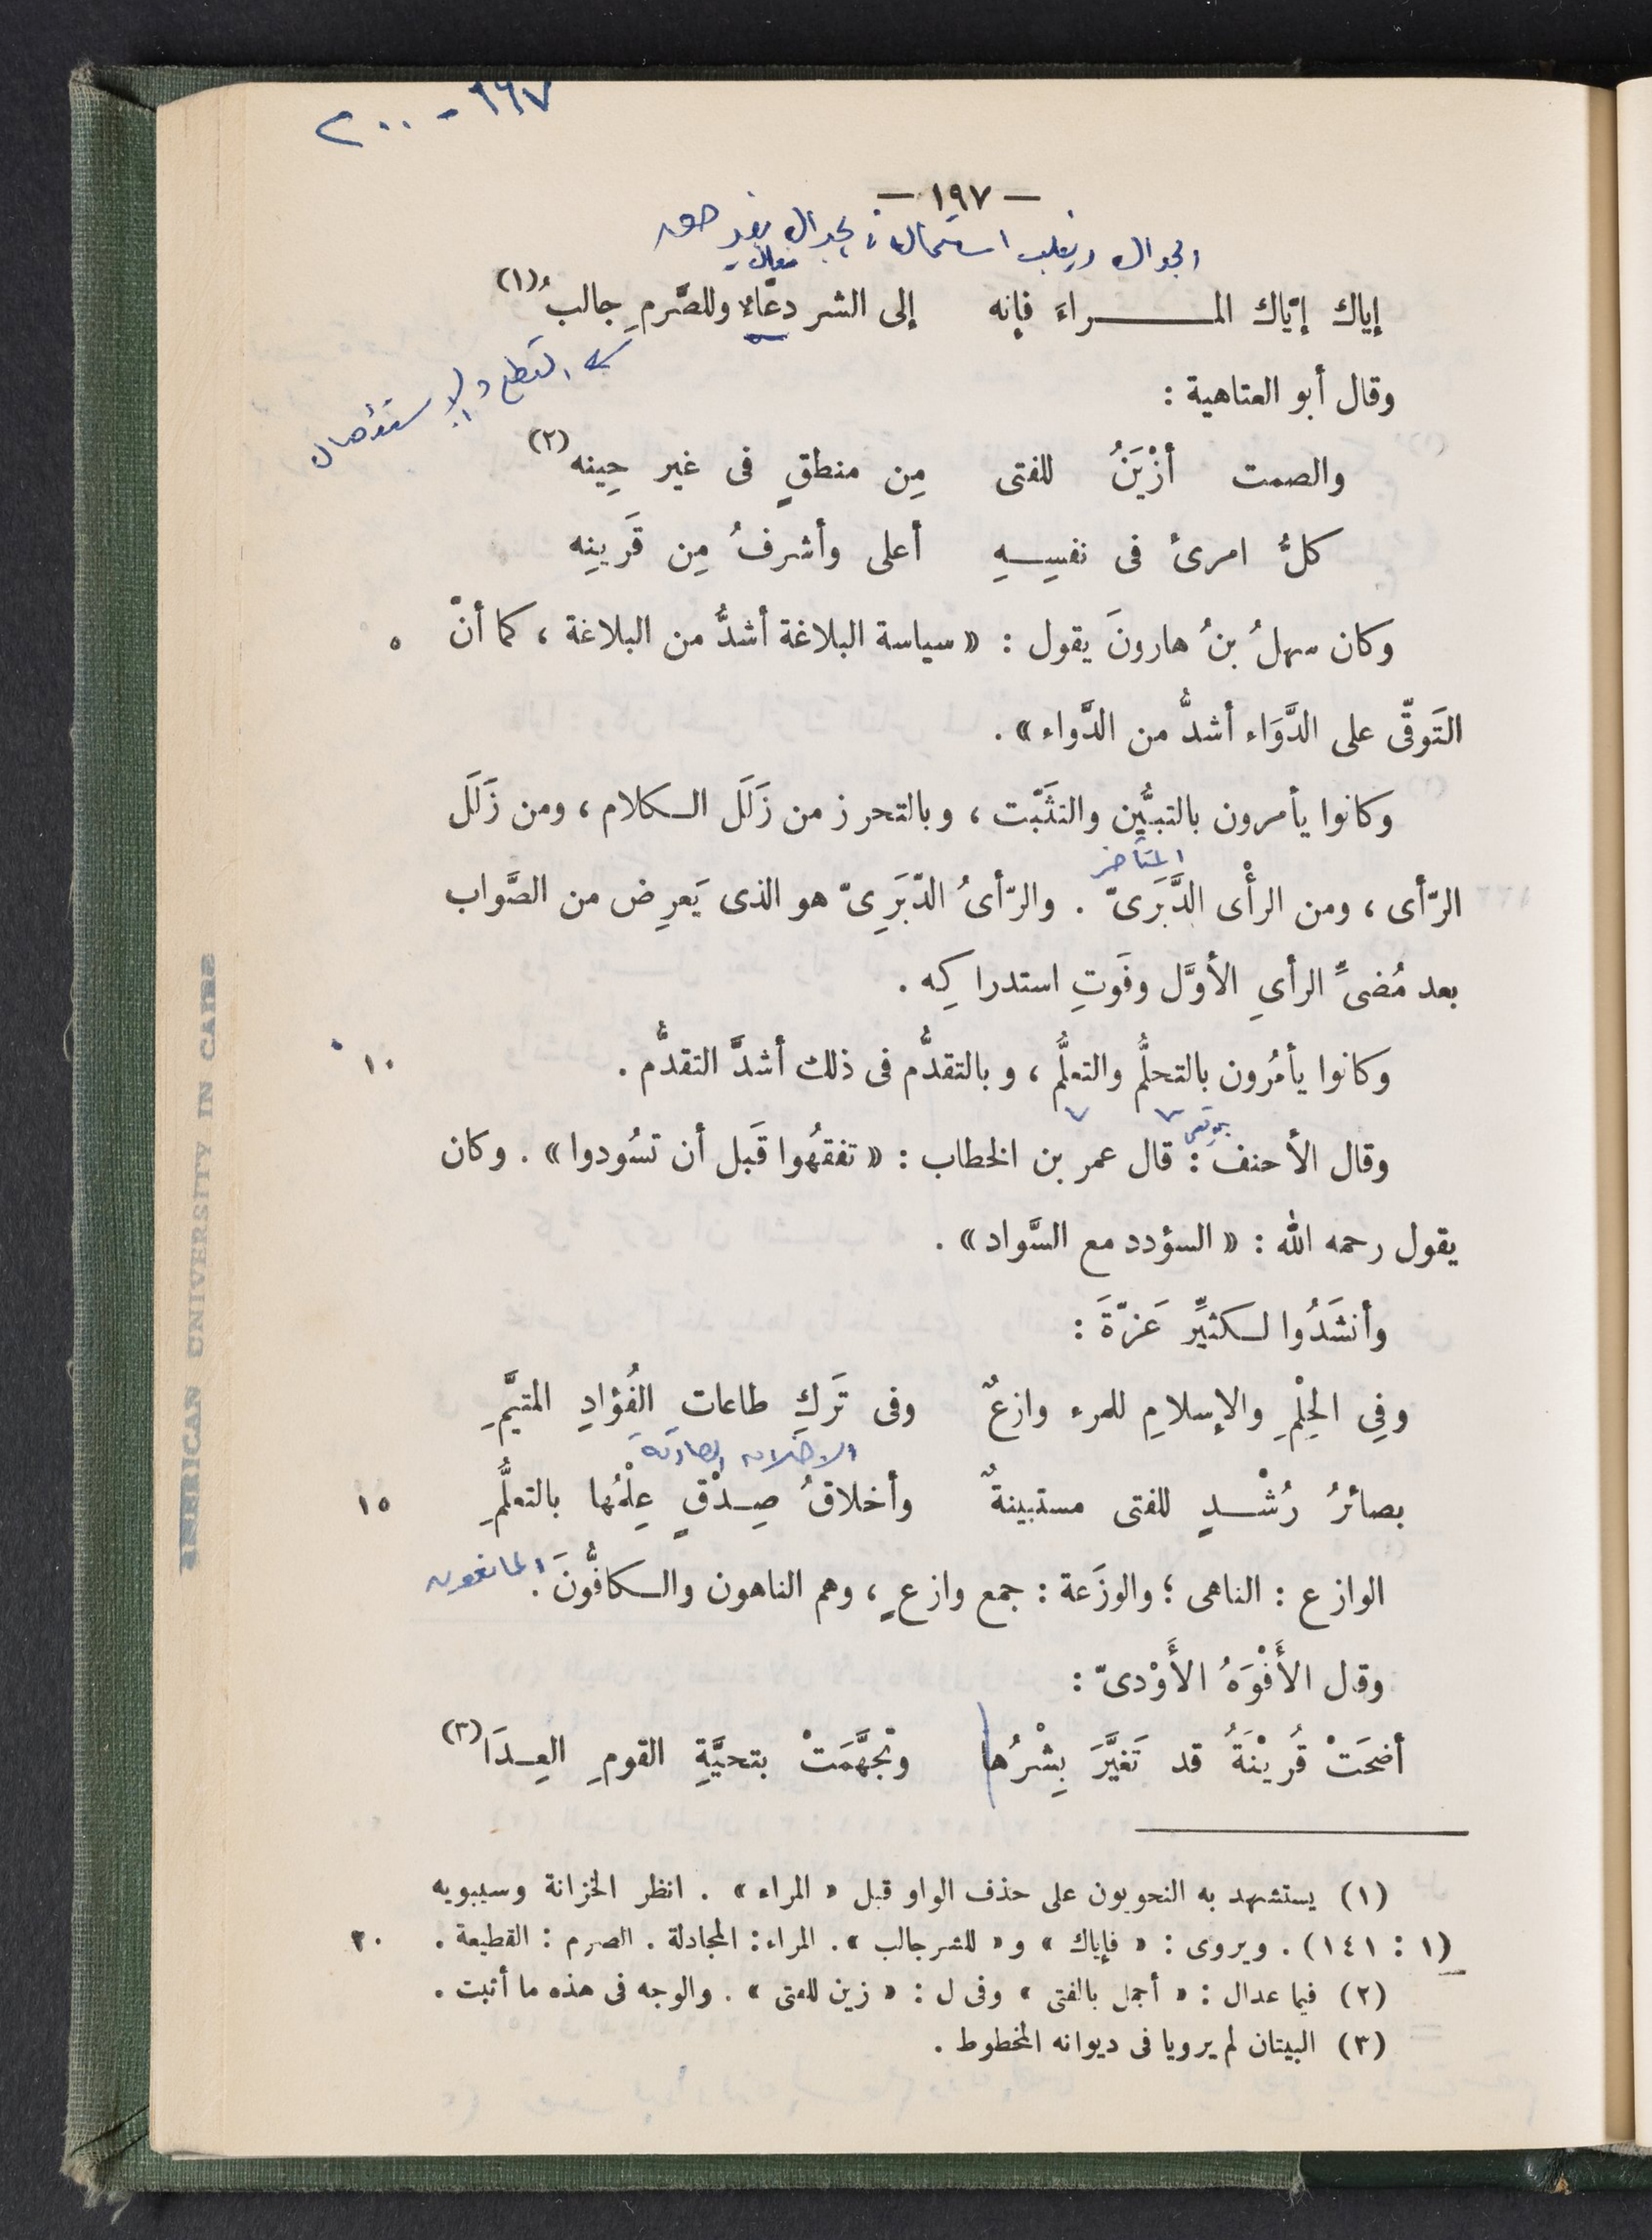 ٢٠٠ - ١٩٧
— ١٩٧ —
الجدال ويغلب استعماله في الجدال بغير حق
فعال
إياك إيّاك المـــــراءَ فإنه إلى الشر دعّاءٌ وللصَّرمِ جالبُ(١)
القطع والاستئصال
وقال أبو العتاهية :
والصمت أزْيَنُ للفتى مِن منطقٍ فى غير حِينه(٢)
كلُّ امرئ فى نفسِــهِ أعلى وأشرفُ مِن قَرينِه
وكان سهلُ بنُ هارونَ يقول : « سياسة البلاغة أشدُّ من البلاغة ، كما أنّ ٥
التَوقّى على الدَّوَاء أشدُّ من الدَّواء » .
وكانوا يأمرون بالتبيُّن والتثَبّت ، وبالتحرز من زَلَل الـكلام ، ومن زَلَل
المتأخر
الرّأى ، ومن الرأْى الدَّبَرىّ . والرّأىُ الدّبَرِىّ هو الذى يَعرِض من الصَّواب
بعد مُضىِّ الرأىِ الأوَّل وفَوتِ استدراكِه .
وكانوا يأمُرون بالتحلُّم والتعلُّم ، وبالتقدُّم فى ذلك أشدَّ التقدُّم . ١٠
وقال الأحنف : قال عمر بن الخطاب : « تفقهُوا قَبل أن تسُودوا » . وكان
يقول رحمه الله : « السؤدد مع السَّواد » .
وأنشَدُوا لـكثيِّر عَزّةَ :
وفِى الحِلْمِ والإسلامِ للمرء وازعٌ وفى تَركِ طاعات الفُؤادِ المتيَّمِ
الاخلاق الصادقة
بصائرُ رُشْــدٍ للفتى مستبينةٌ وأخلاقُ صِـدْقٍ عِلْمُها بالتعلُّمِ ١٥
الوازع : الناهى ؛ والوزَعة : جمع وازعٍ ، وهم الناهون والـكافُّونَ . المانعون
وقال الأَفْوَهُ الأَوْدىّ :
أضحَتْ قُرَيْنَةُ قد تَغيَّرَ بِشْرُها وتجهَّمَتْ بتحيَّةِ القومِ العِـدَا(٣)
(١) يستشهد به النحويون على حذف الواو قبل « المراء » . انظر الخزانة وسيبويه
(١ : ١٤١) . ويروى : « فإياك » و « للشر جالب » . المراء : المجادلة . الصرم : القطيعة . ٢٠
(٢) فيما عدا ل : « أجمل بالفتى » وفى ل : « زين للفتى » . والوجه فى هذه ما أثبت .
(٣) البيتان لم يرويا فى ديوانه المخطوط .
AMERICAN UNIVERSITY IN CAIRO